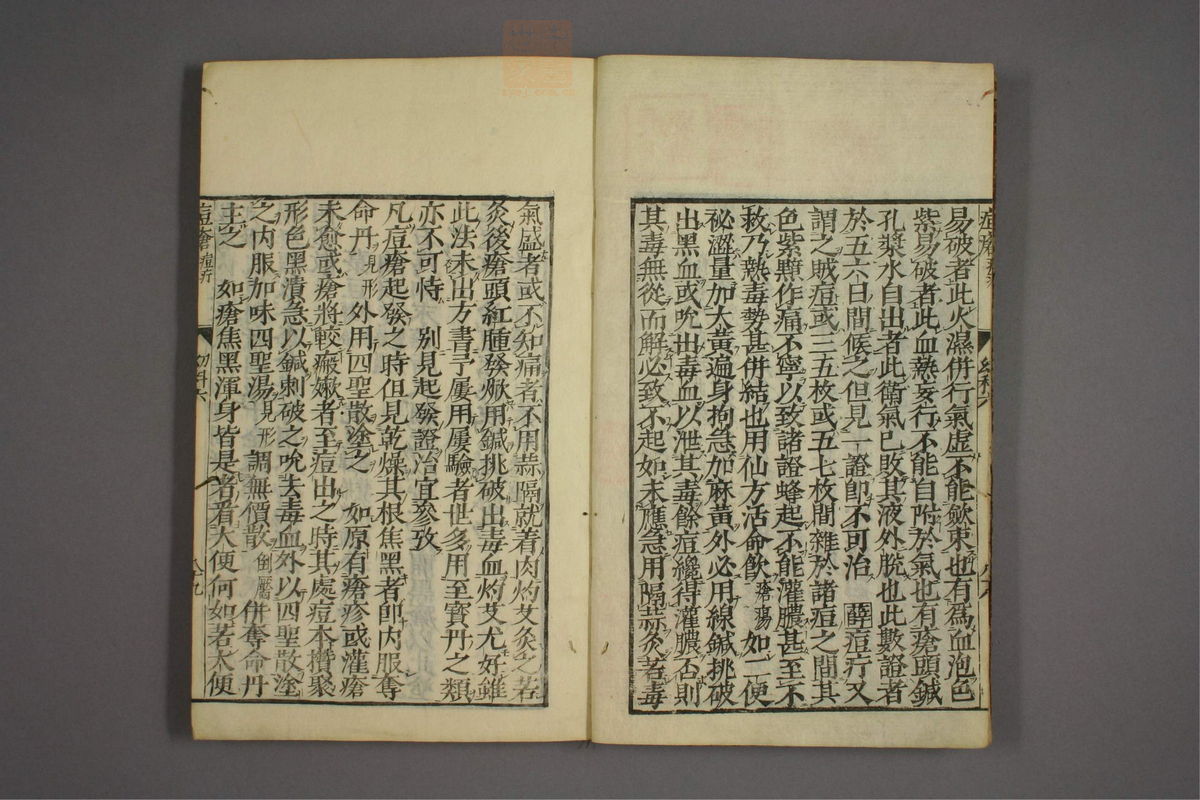 易破者此火濕併行氣虛不能斂束也有為血泡色
紫易破者此血熱妄行不能自附於氣也有瘡頭鍼
孔漿水自出者此衛氣已敗其液外脫也此數證者
於五六日間候之但見一證即不可治 薛痘疔又
謂之賊痘或三五枚或五七枚間雜於諸痘之間其
色紫黯作痛不寧以致諸證蜂起不能灌膿甚至不
救乃熱毒勢甚併結也用仙方活命飲瘡瘍如二便
祕澀量加大黃遍身拘急加麻黃外必用線鍼挑破
出黑血或吮出毒血以泄其毒餘痘纔得灌膿否則
其毒無從而解必致不起如未應急用隔蒜灸若毒
氣盛者或不知痛者不用蒜隔就着肉灼艾灸之若
灸後瘡頭紅腫發焮用鍼挑破出毒血灼艾尤好雖
此法未出方書予屢用屢驗者世多用至寳丹之類
亦不可恃 別見起發證治宜參攷
凡痘瘡起發之時但見乾燥其根焦黑者即內服奪
命丹見形外用四聖散塗之 如原有瘡疹或灌瘡
未愈或瘡將較瘢嫩者至痘出之時其處痘本攢聚
形色黑潰急以鍼刺破之吮去毒血外以四聖散塗
之內服加味四聖湯見形調無價散倒黶併奪命丹
主之 如瘡焦黑渾身皆是者看大便何如若大便
痘瘡痘疔
幼科六
八九